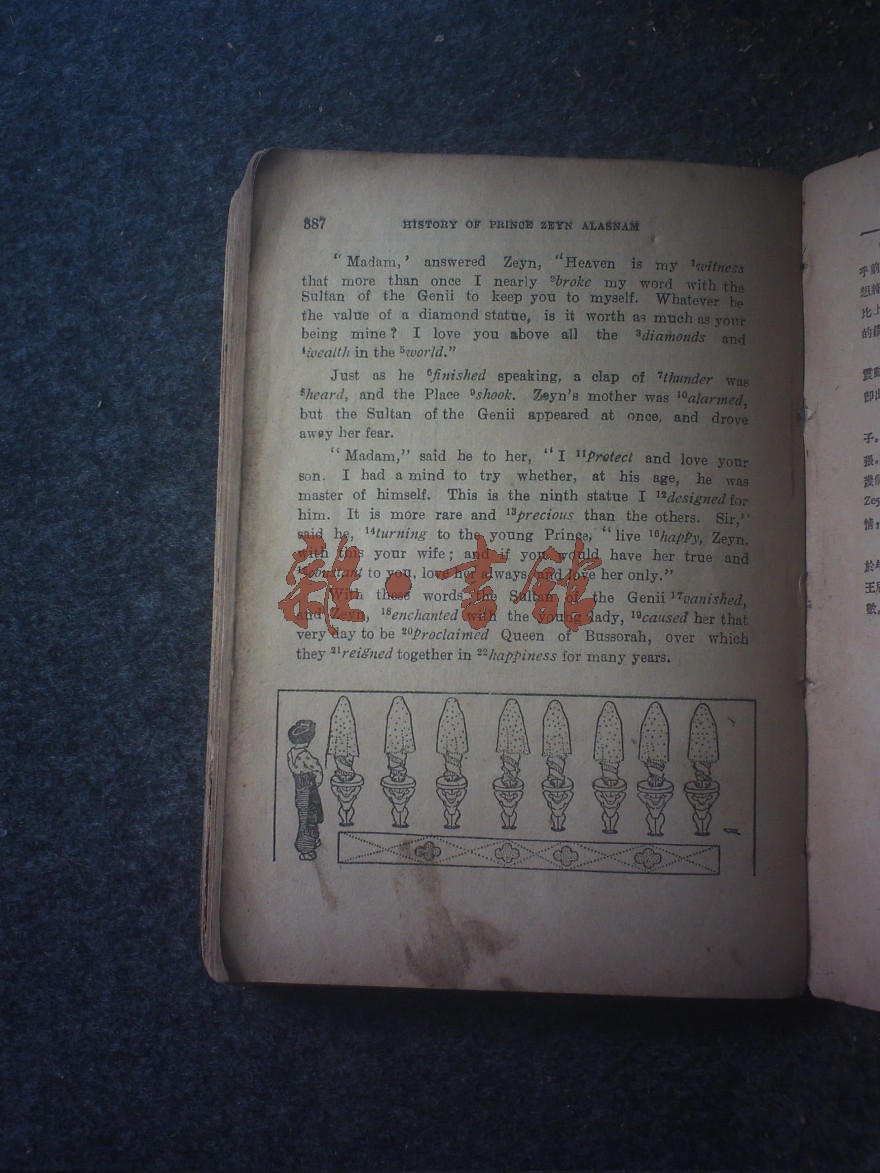 387 HISTORY OF PRINCE ZEYN ALASNAM
"Madam,' answered Zeyn, "Heaven is my ¹witness
that more than once I nearly ²broke my word with the
Sultan of the Genii to keep you to myself. Whatever be
the value of a diamond statue, is it worth as much as your
being mine? I love you above all the ³diamonds and
⁴wealth in the ⁵world."
Just as he ⁶finished speaking, a clap of ⁷thunder was
⁸heard, and the Place ⁹shook. Zeyn's mother was ¹⁰alarmed,
but the Sultan of the Genii appeared at once, and drove
away her fear.
"Madam," said he to her, "I ¹¹protect and love your
son. I had a mind to try whether, at his age, he was
master of himself. This is the ninth statue I ¹²designed for
him. It is more rare and ¹³precious than the others. Sir,"
said he, ¹⁴turning to the young Prince, "live ¹⁵happy, Zeyn.
with this your wife; and if you would have her true and
to you, love her always and love her only."
With these words the Sultan of the Genii ¹⁷vanished,
and Zeyn, ¹⁸enchanted with the young lady, ¹⁹caused her that
very day to be ²⁰proclaimed Queen of Bussorah, over which
they ²¹reigned together in ²²happiness for many years.
雜·書館
乎前
比上
的鑽
震動
即出
子。
張。
Zey
情，
於年
王后
歡。